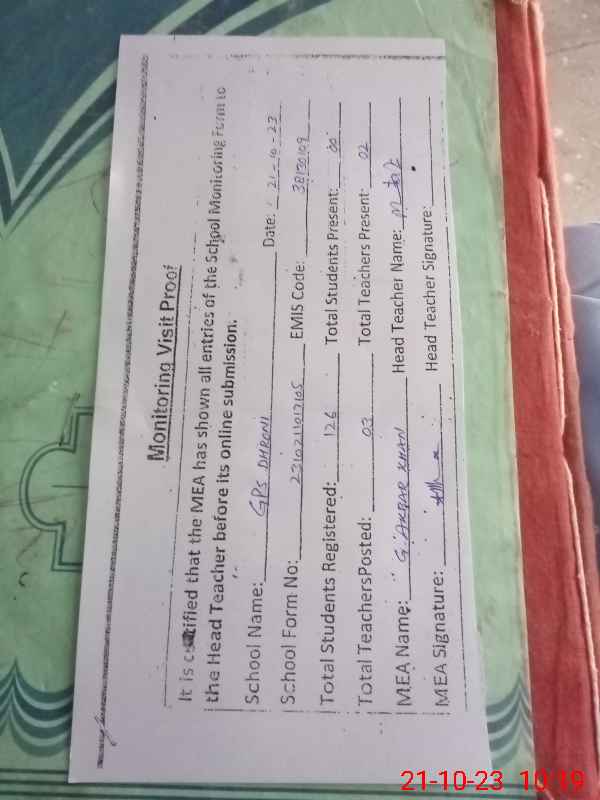 Monitoring Visit Proof
It is certified that the MEA has shown all entries of the School Monitoring Form to
the Head Teacher before its online submission.
School Name: GPS DHRONI Date: 21-10-23
School Form No: 2310211017105 EMIS Code: 38130109
Total Students Registered: 126 Total Students Present: 00
Total TeachersPosted: 03 Total Teachers Present: 02
MEA Name: G. AKBAR KHAN Head Teacher Name:
MEA Signature: Head Teacher Signature:
21-10-23 10:19